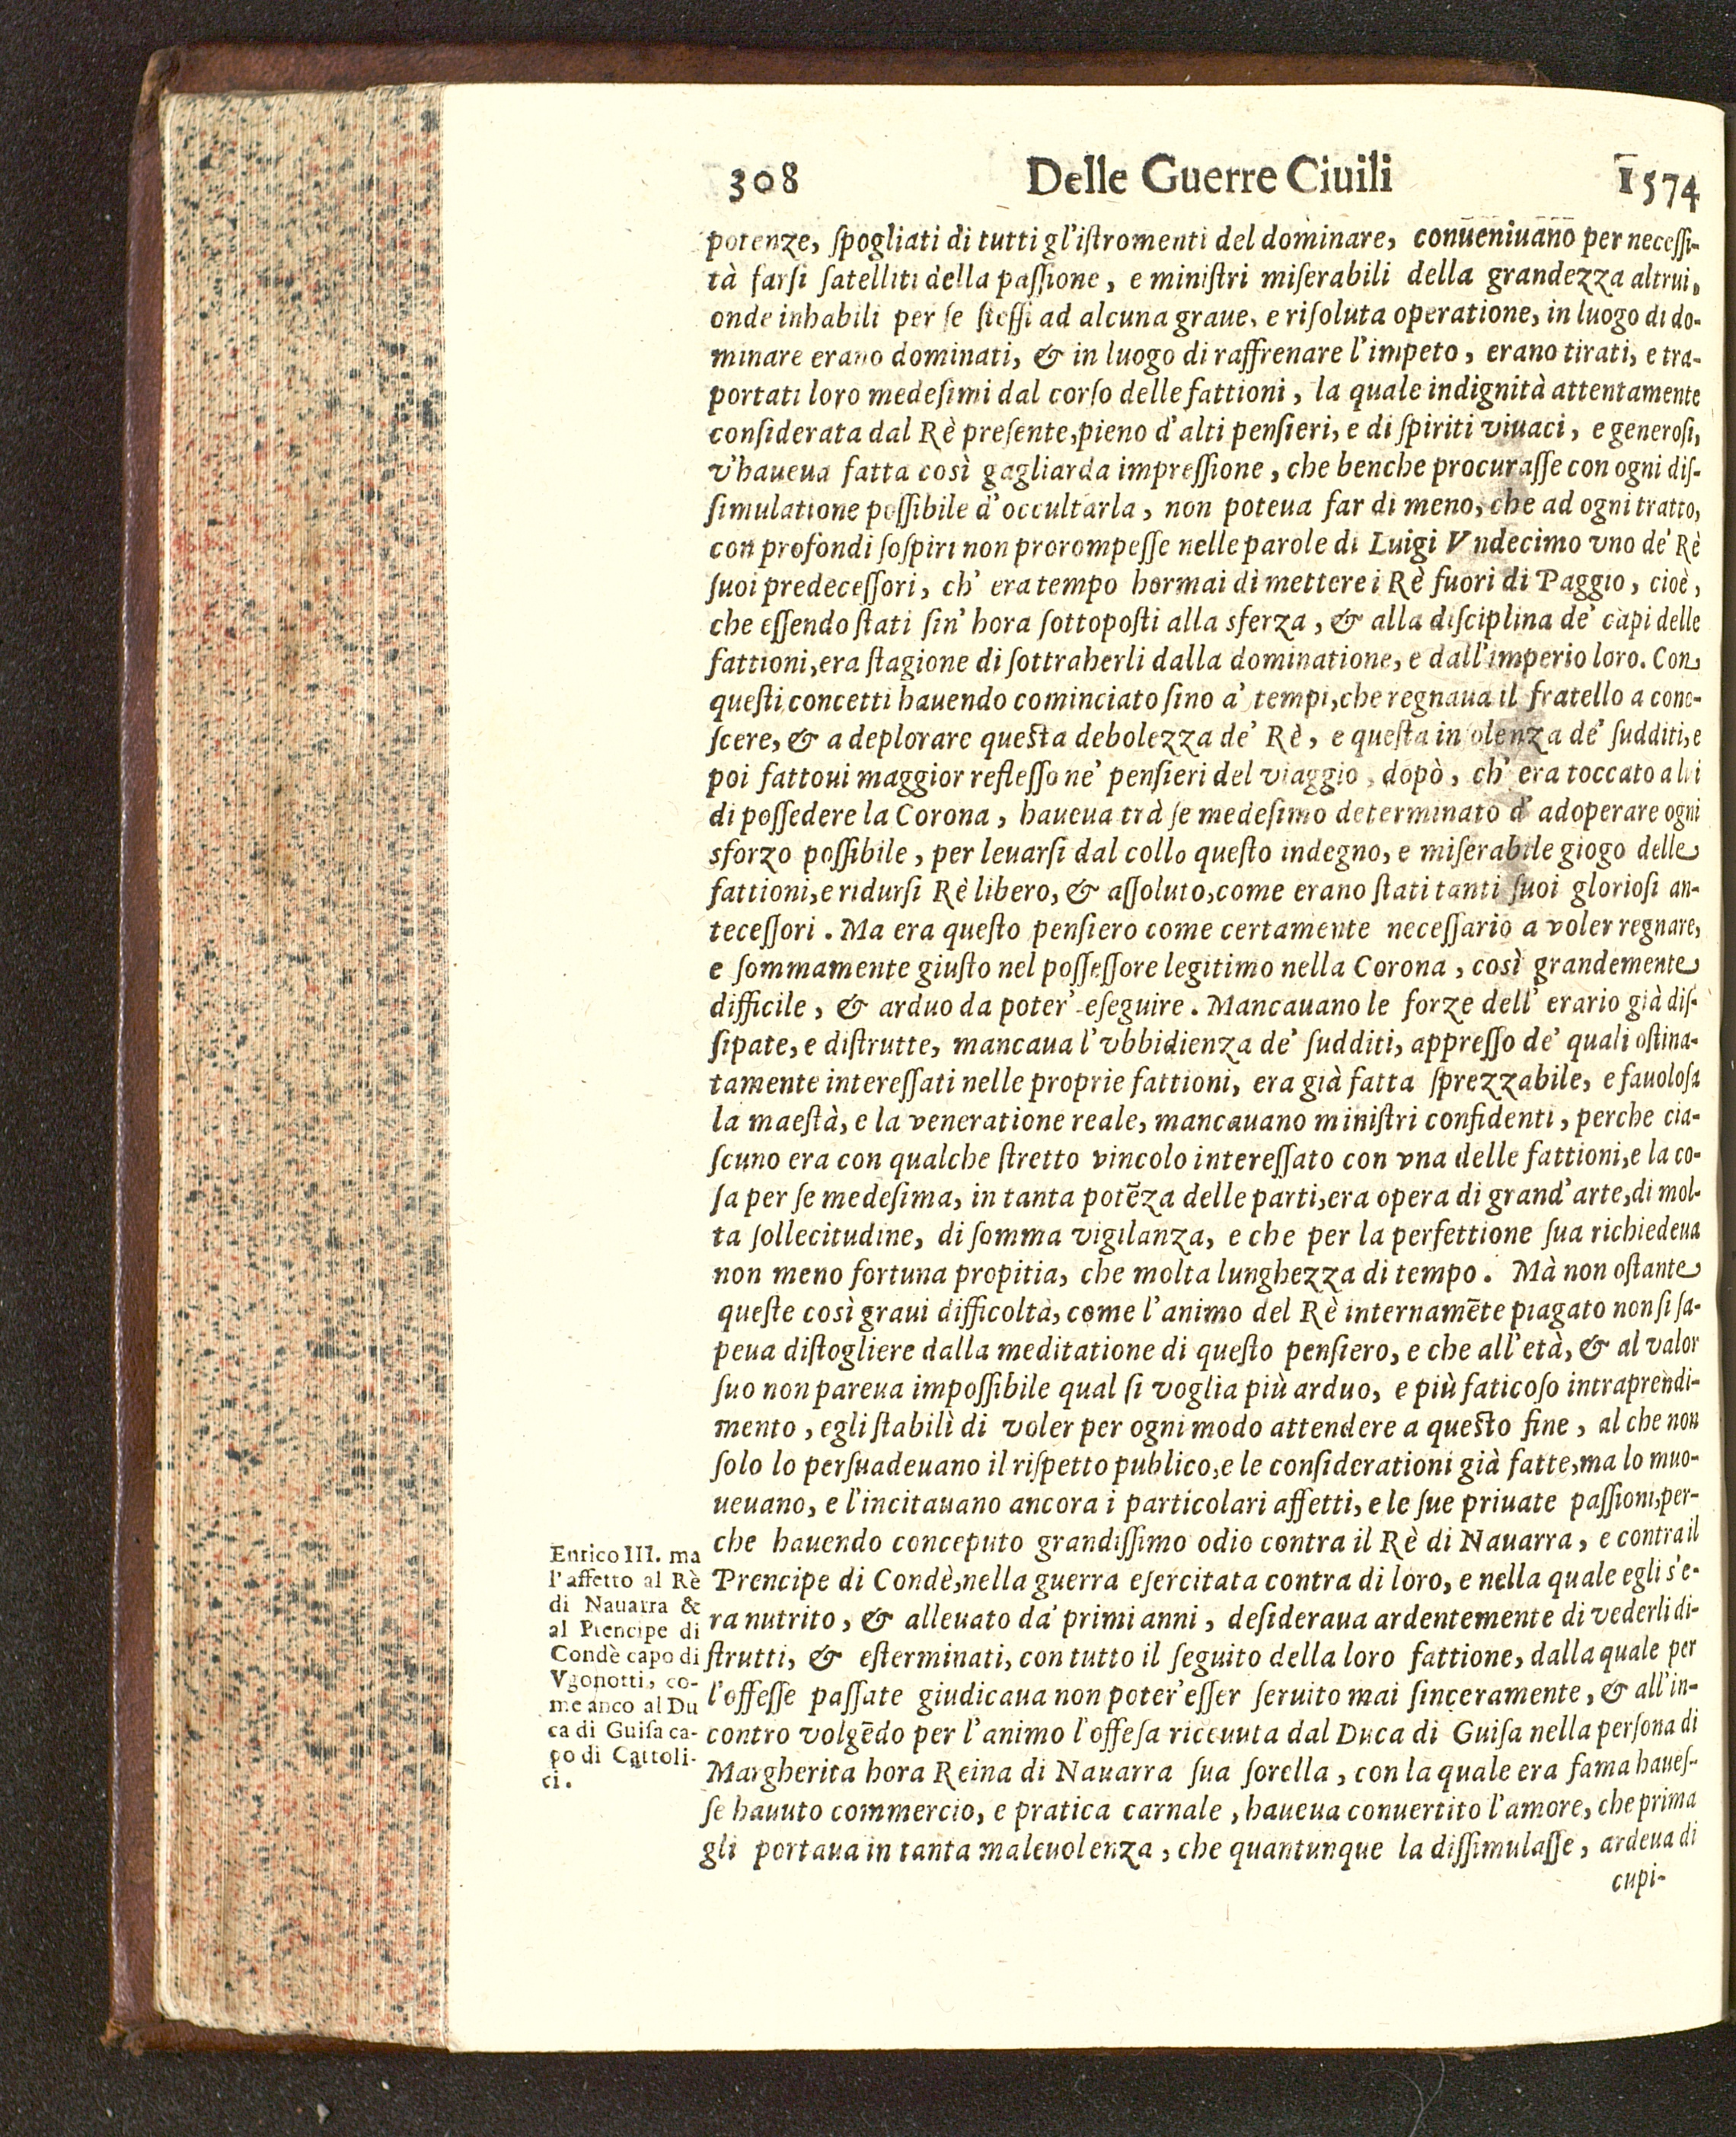 308 Delle Guerre Ciuili 1574
potenze, ſpogliati di tutti gl'iſtromenti del dominare, conueniuano per neceſſi-
tà farſi ſatelliti della paſſione, e miniſtri miſerabili della grandezza altrui,
onde inhabili per ſe ſteſſi ad alcuna graue, e riſoluta operatione, in luogo di do-
minare erano dominati, & in luogo di raffrenare l'impeto, erano tirati, e tra-
portati loro medeſimi dal corſo delle fattioni, la quale indignità attentamente
conſiderata dal Rè preſente, pieno d'alti penſieri, e di ſpiriti viuaci, e generoſi,
v'haueua fatta così gagliarda impreſſione, che benche procuraſſe con ogni diſ-
ſimulatione poſſibile d'occultarla, non poteua far di meno, che ad ogni tratto,
con profondi ſoſpiri non prorompeſſe nelle parole di Luigi Vndecimo vno de' Rè
ſuoi predeceſſori, ch' era tempo hormai di mettere i Rè fuori di Paggio, cioè,
che eſſendo ſtati ſin' hora ſottopoſti alla sferza, & alla diſciplina de' capi delle
fattioni, era ſtagione di ſottraherli dalla dominatione, e dall'imperio loro. Con
queſti concetti hauendo cominciato ſino a' tempi, che regnaua il fratello a cono-
ſcere, & a deplorare queſta debolezza de' Rè, e queſta inſolenza de' ſudditi, e
poi fattoui maggior refleſſo ne' penſieri del viaggio, dopò, ch' era toccato a lui
di poſſedere la Corona, haueua trà ſe medeſimo determinato d' adoperare ogni
sforzo poſſibile, per leuarſi dal collo queſto indegno, e miſerabile giogo delle
fattioni, e ridurſi Rè libero, & aſſoluto, come erano ſtati tanti ſuoi glorioſi an-
teceſſori. Ma era queſto penſiero come certamente neceſſario a voler regnare,
e ſommamente giuſto nel poſſeſſore legitimo nella Corona, così grandemente
difficile, & arduo da poter' eſeguire. Mancauano le forze dell' erario già diſ-
ſipate, e diſtrutte, mancaua l'vbbidienza de' ſudditi, appreſſo de' quali oſtina-
tamente intereſſati nelle proprie fattioni, era già fatta ſprezzabile, e fauoloſa
la maeſtà, e la veneratione reale, mancauano miniſtri confidenti, perche cia-
ſcuno era con qualche ſtretto vincolo intereſſato con vna delle fattioni, e la co-
ſa per ſe medeſima, in tanta potēza delle parti, era opera di grand' arte, di mol-
ta ſollecitudine, di ſomma vigilanza, e che per la perfettione ſua richiedeua
non meno fortuna propitia, che molta lunghezza di tempo. Mà non oſtante
queſte così graui difficoltà, come l'animo del Rè internamēte piagato non ſi ſa-
peua diſtogliere dalla meditatione di queſto penſiero, e che all'età, & al valor
ſuo non pareua impoſſibile qual ſi voglia più arduo, e più faticoſo intraprendi-
mento, egli ſtabilì di voler per ogni modo attendere a queſto fine, al che non
ſolo lo perſuadeuano il riſpetto publico, e le conſiderationi già fatte, ma lo muo-
ueuano, e l'incitauano ancora i particolari affetti, e le ſue priuate paſſioni, per-
che hauendo conceputo grandiſſimo odio contra il Rè di Nauarra, e contra il
Prencipe di Condè, nella guerra eſercitata contra di loro, e nella quale egli s'e-
ra nutrito, & alleuato da' primi anni, deſideraua ardentemente di vederli di-
ſtrutti, & eſterminati, con tutto il ſeguito della loro fattione, dalla quale per
l'offeſſe paſſate giudicaua non poter'eſſer ſeruito mai ſinceramente, & all'in-
contro volgēdo per l'animo l'offeſa riceuuta dal Duca di Guiſa nella perſona di
Margherita hora Reina di Nauarra ſua ſorella, con la quale era fama haueſ-
ſe hauuto commercio, e pratica carnale, haueua conuertito l'amore, che prima
gli portaua in tanta maleuolenza, che quantunque la diſſimulaſſe, ardeua di
cupi-
Enrico III. ma
l'affetto al Rè
di Nauarra &
al Prencipe di
Condè capo di
Vgonotti, co-
me anco al Du
ca di Guiſa ca-
po di Cattoli-
ci.